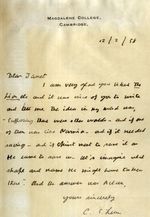 MAGDALENE COLLEGE,
CAMBRIDGE.
12/2/58
Dear Janet
I am very glad you liked the
and it was nice of you to write
and tell me. The idea in my mind was,
"Supposing there were other worlds - and if one
of them was like Narnia - and if it needed
saving - and if Christ went to save it as
He came to save us - let's imagine what
shape and name He might have taken
there". And the answer was Aslan.
Yours sincerely
C. S. Lewis